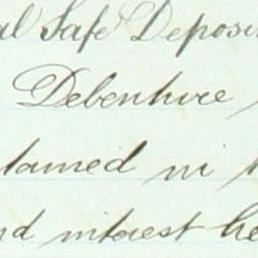 al Safe Deposi
Debenture
tained in
nd interest he